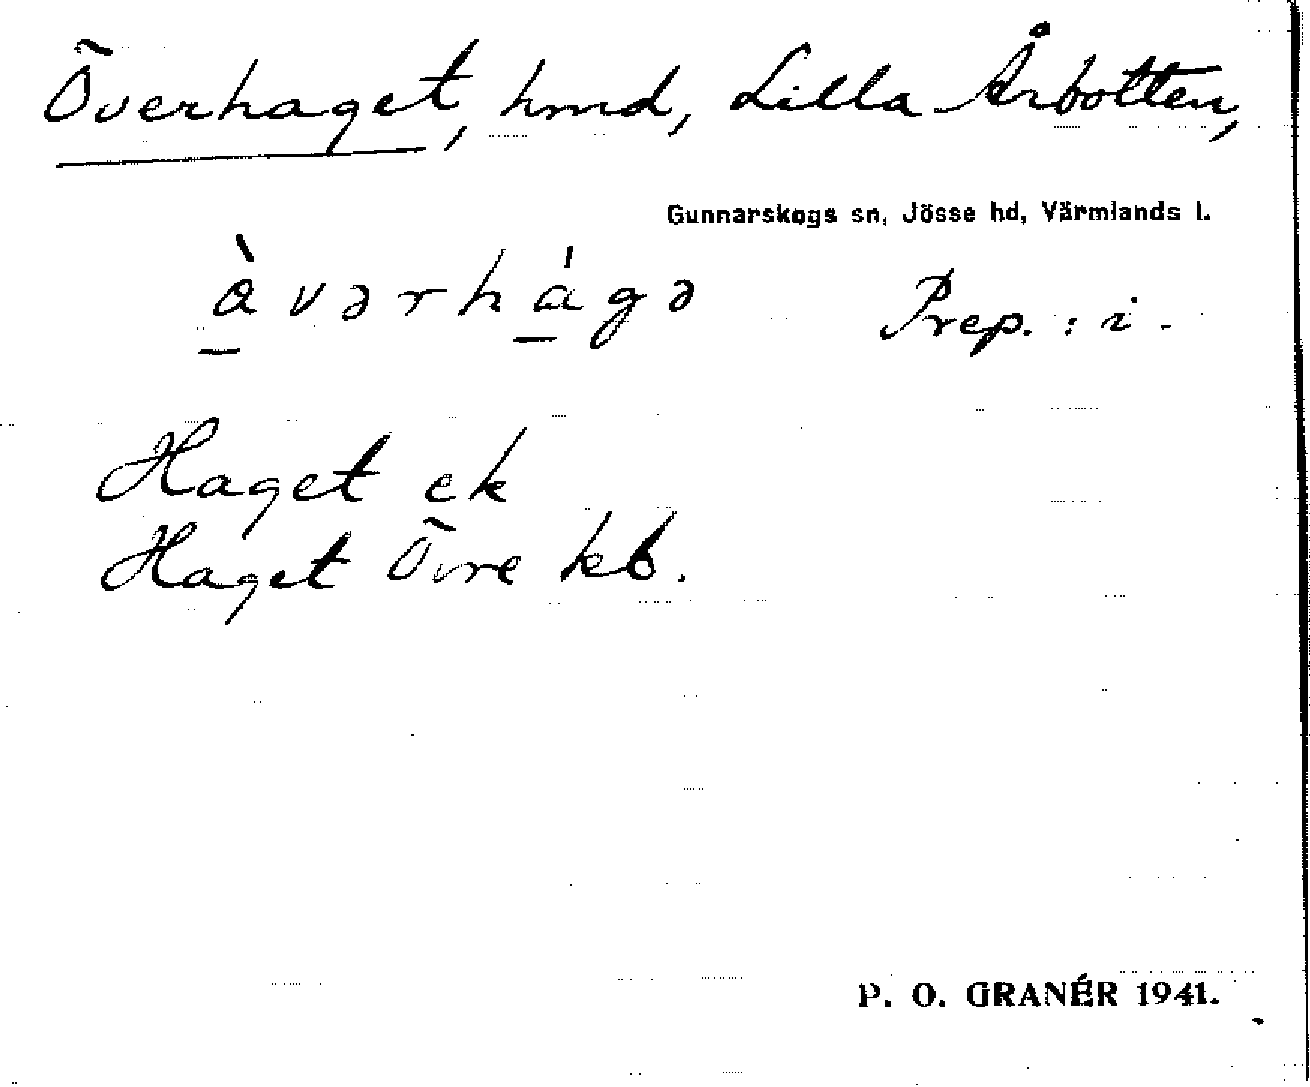 Överhaget, hmd, Lilla Årbotten,
Gunnarskogs sn, Jösse hd, Värmlands l.
à̱vərhá̱gə Prep. : i.
Haget ek
Haget Övre kb.
P. O. GRANÉR 1941.